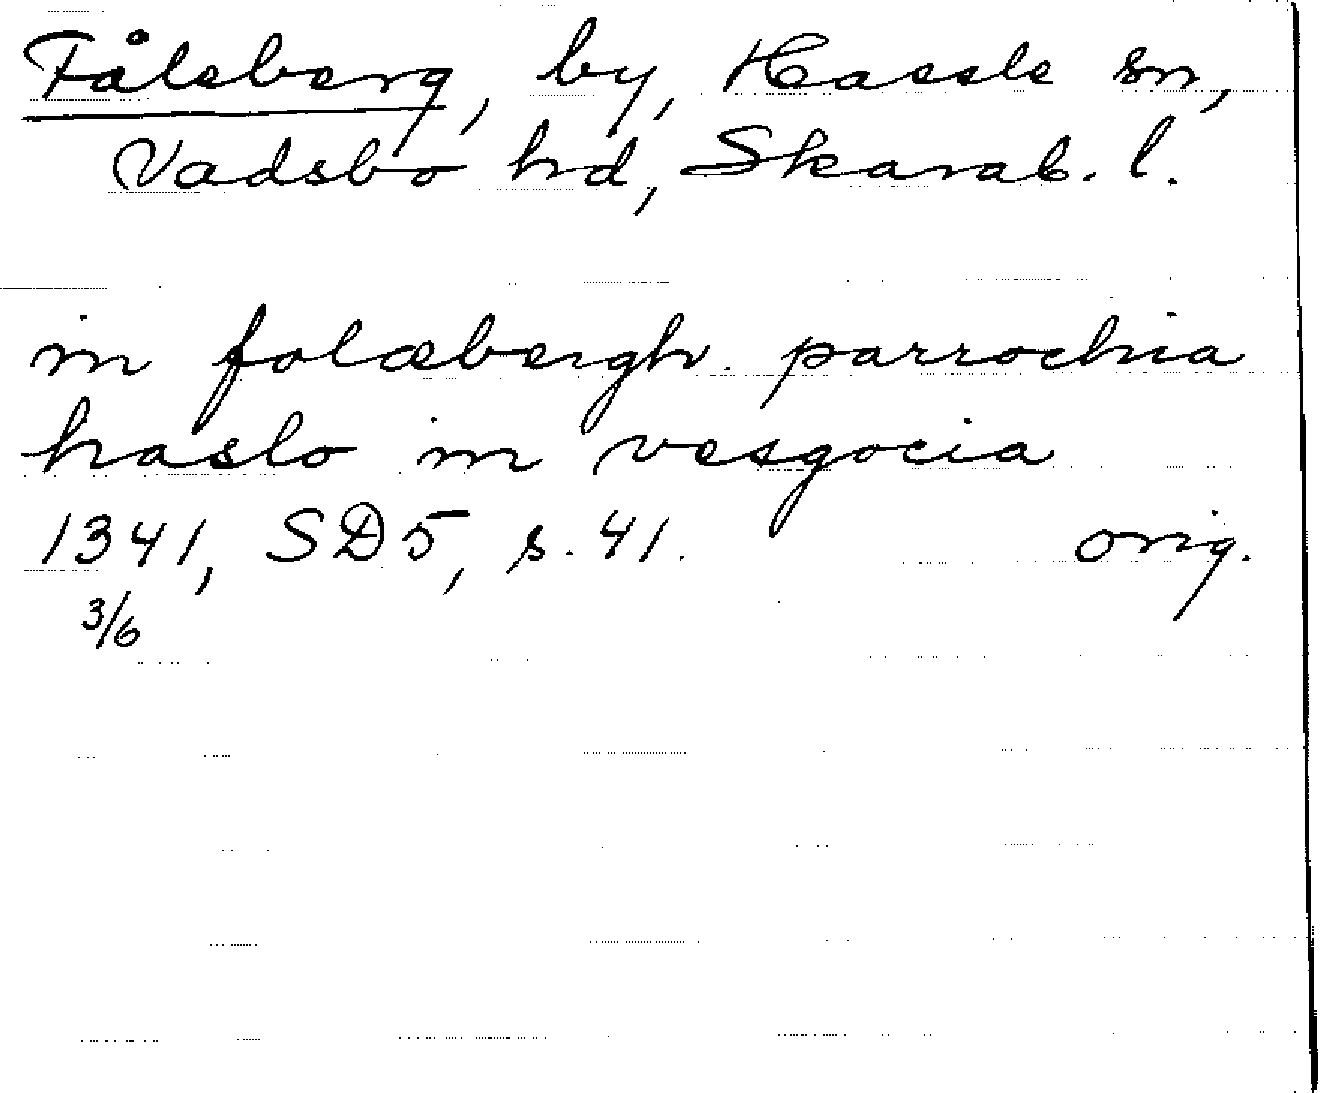 Fåleberg, by, Hassle sn,
Vadsbo hd, Skarab. l.
in folæbergh. parrochia
haslo in vesgocia
1341, SD5, s. 41. orig.
3/6